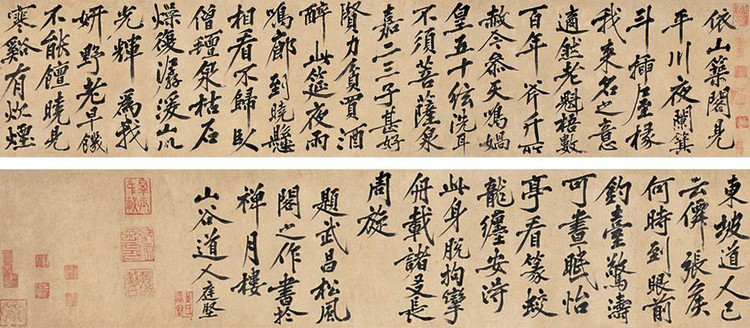 依山築閣見
平川夜闌箕
斗插屋椽
我來名之意
適然老魁梧數
百年斧斤所
赦令參天鳴媧
皇五十弦洗耳
不須菩薩泉
嘉二三子甚好
賢力貧買酒
醉此筵夜雨
鳴廊到曉懸
相看不歸臥
僧氈泉枯石
燥復潺湲山川
光輝為我
妍野老早饑
不能饘曉見
寒谿有炊煙
東坡道人已
去僊張侯
何時到眼前
釣臺驚濤
可晝賦怡
亭看篆蛟
龍纏安得
此身脫拘攣
舟載諸友長
周旋
題武昌松風
閣之作書於
禪月樓
山谷道人庭堅